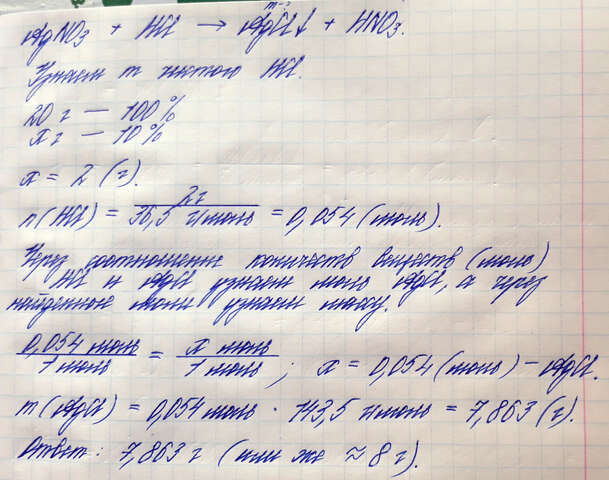 m-?
AgNO3 + HCl → AgCl↓ + HNO3.
Узнаем m чистого HCl.
20 г — 100 %
x г — 10 %
x = 2 (г).
n(HCl) = 2 г / 36,5 г/моль = 0,054 (моль).
Через соотношение количеств веществ (моль)
HCl и AgCl узнаем моль AgCl, а через
найденное моли узнаем массу.
0,054 моль / 1 моль = x моль / 1 моль ; x = 0,054 (моль) - AgCl.
m (AgCl) = 0,054 моль · 143,5 г/моль = 7,863 (г).
Ответ: 7,863 г (или же ≈ 8 г).